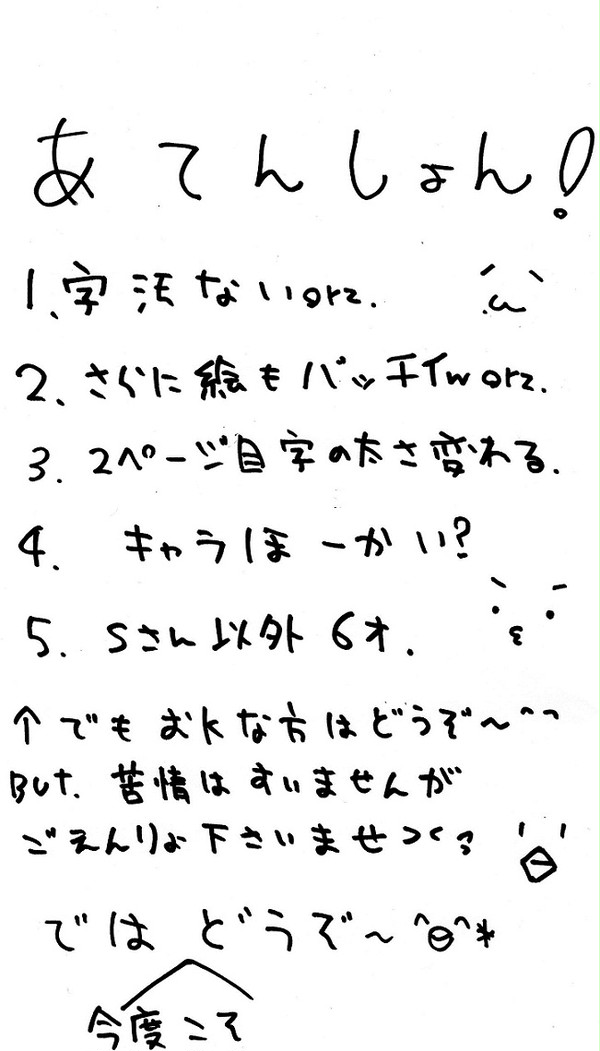 あてんしょん!
1、字汚ないorz.
2、さらに絵もバッチイw orz.
3. 2ページ目字の太さ変わる.
4. キャラほーかい?
5. Sさん以外6才.
↑でもおkな方はどうぞ~^^
But. 苦情はすいませんが
ごえんりょ下さいませ><
ではどうぞ~^θ^*
今度こそ